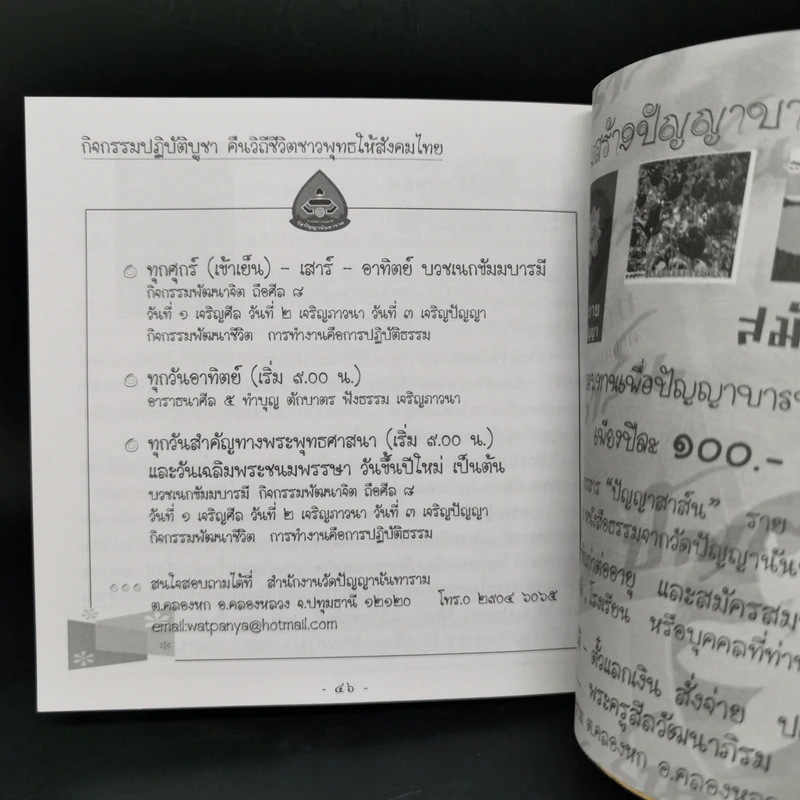 กิจกรรมปฏิบัติบูชา คืนวิถีชีวิตชาวพุทธให้สังคมไทย
วัดปัญญานันทาราม
ทุกศุกร์ (เข้าเย็น) - เสาร์ - อาทิตย์ บวชเนกขัมมบารมี
กิจกรรมพัฒนาจิต ถือศีล ๘
วันที่ ๑ เจริญศีล วันที่ ๒ เจริญภาวนา วันที่ ๓ เจริญปัญญา
กิจกรรมพัฒนาชีวิต การทำงานคือการปฏิบัติธรรม
ทุกวันอาทิตย์ (เริ่ม ๙.๐๐ น.)
อาราธนาศีล ๕ ทำบุญ ตักบาตร ฟังธรรม เจริญภาวนา
ทุกวันสำคัญทางพระพุทธศาสนา (เริ่ม ๙.๐๐ น.)
และวันเฉลิมพระชนมพรรษา วันขึ้นปีใหม่ เป็นต้น
บวชเนกขัมมบารมี กิจกรรมพัฒนาจิต ถือศีล ๘
วันที่ ๑ เจริญศีล วันที่ ๒ เจริญภาวนา วันที่ ๓ เจริญปัญญา
กิจกรรมพัฒนาชีวิต การทำงานคือการปฏิบัติธรรม
สนใจสอบถามได้ที่ สำนักงานวัดปัญญานันทาราม
ต.คลองหก อ.คลองหลวง จ.ปทุมธานี ๑๒๑๒๐ โทร.๐ ๒๙๐๔ ๖๐๖๕
email:watpanya@hotmail.com
- ๔๖ -
สร้างปัญญาบา
สมั
ทานเพื่อปัญญาบาร
เพียงปีละ ๑๐๐.-
สาร "ปัญญาสาส์น" ราย
หนังสือธรรมจากวัดปัญญานัน
ต่ออายุ และสมัครสม
โรงเรียน หรือบุคคลที่ท่า
- ตั๋วแลกเงิน สั่งจ่าย ป
พระครูสีลวัฒนาภิรม
ต.คลองหก อ.คลองหล